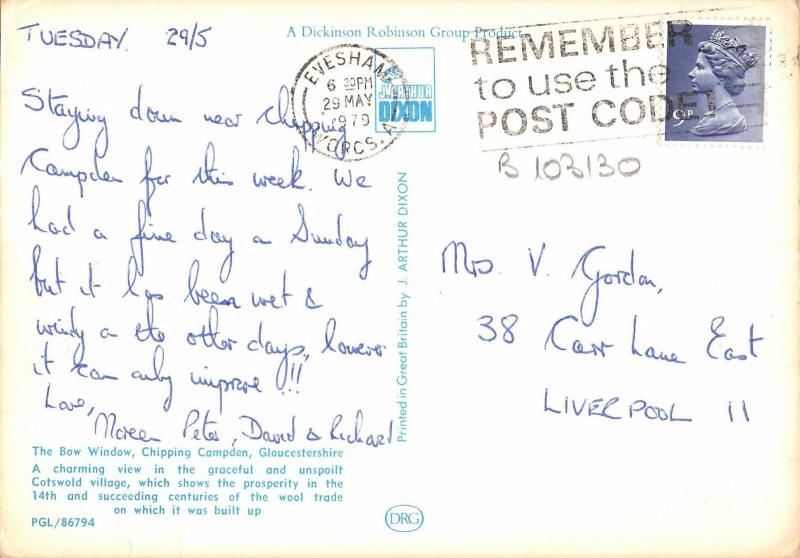 TUESDAY 29/5
Staying down near Chipping
Campden for this week. We
had a fine day on Sunday
but it has been wet &
windy on the other days, however
it can only improve!!!
Love,
Moreen Peter, David & Richard
The Bow Window, Chipping Campden, Gloucestershire
A charming view in the graceful and unspoilt
Cotswold village, which shows the prosperity in the
14th and succeeding centuries of the wool trade
on which it was built up
PGL/86794
A Dickinson Robinson Group Product
J. ARTHUR
DIXON
Printed in Great Britain by J. ARTHUR DIXON
DRG
EVESHAM
6 30PM
29 MAY
1979
WORCS.
REMEMBER
to use the
POST CODE!
9P
B 103130
Mrs V. Gordon,
38 Carr Lane East
LIVERPOOL 11